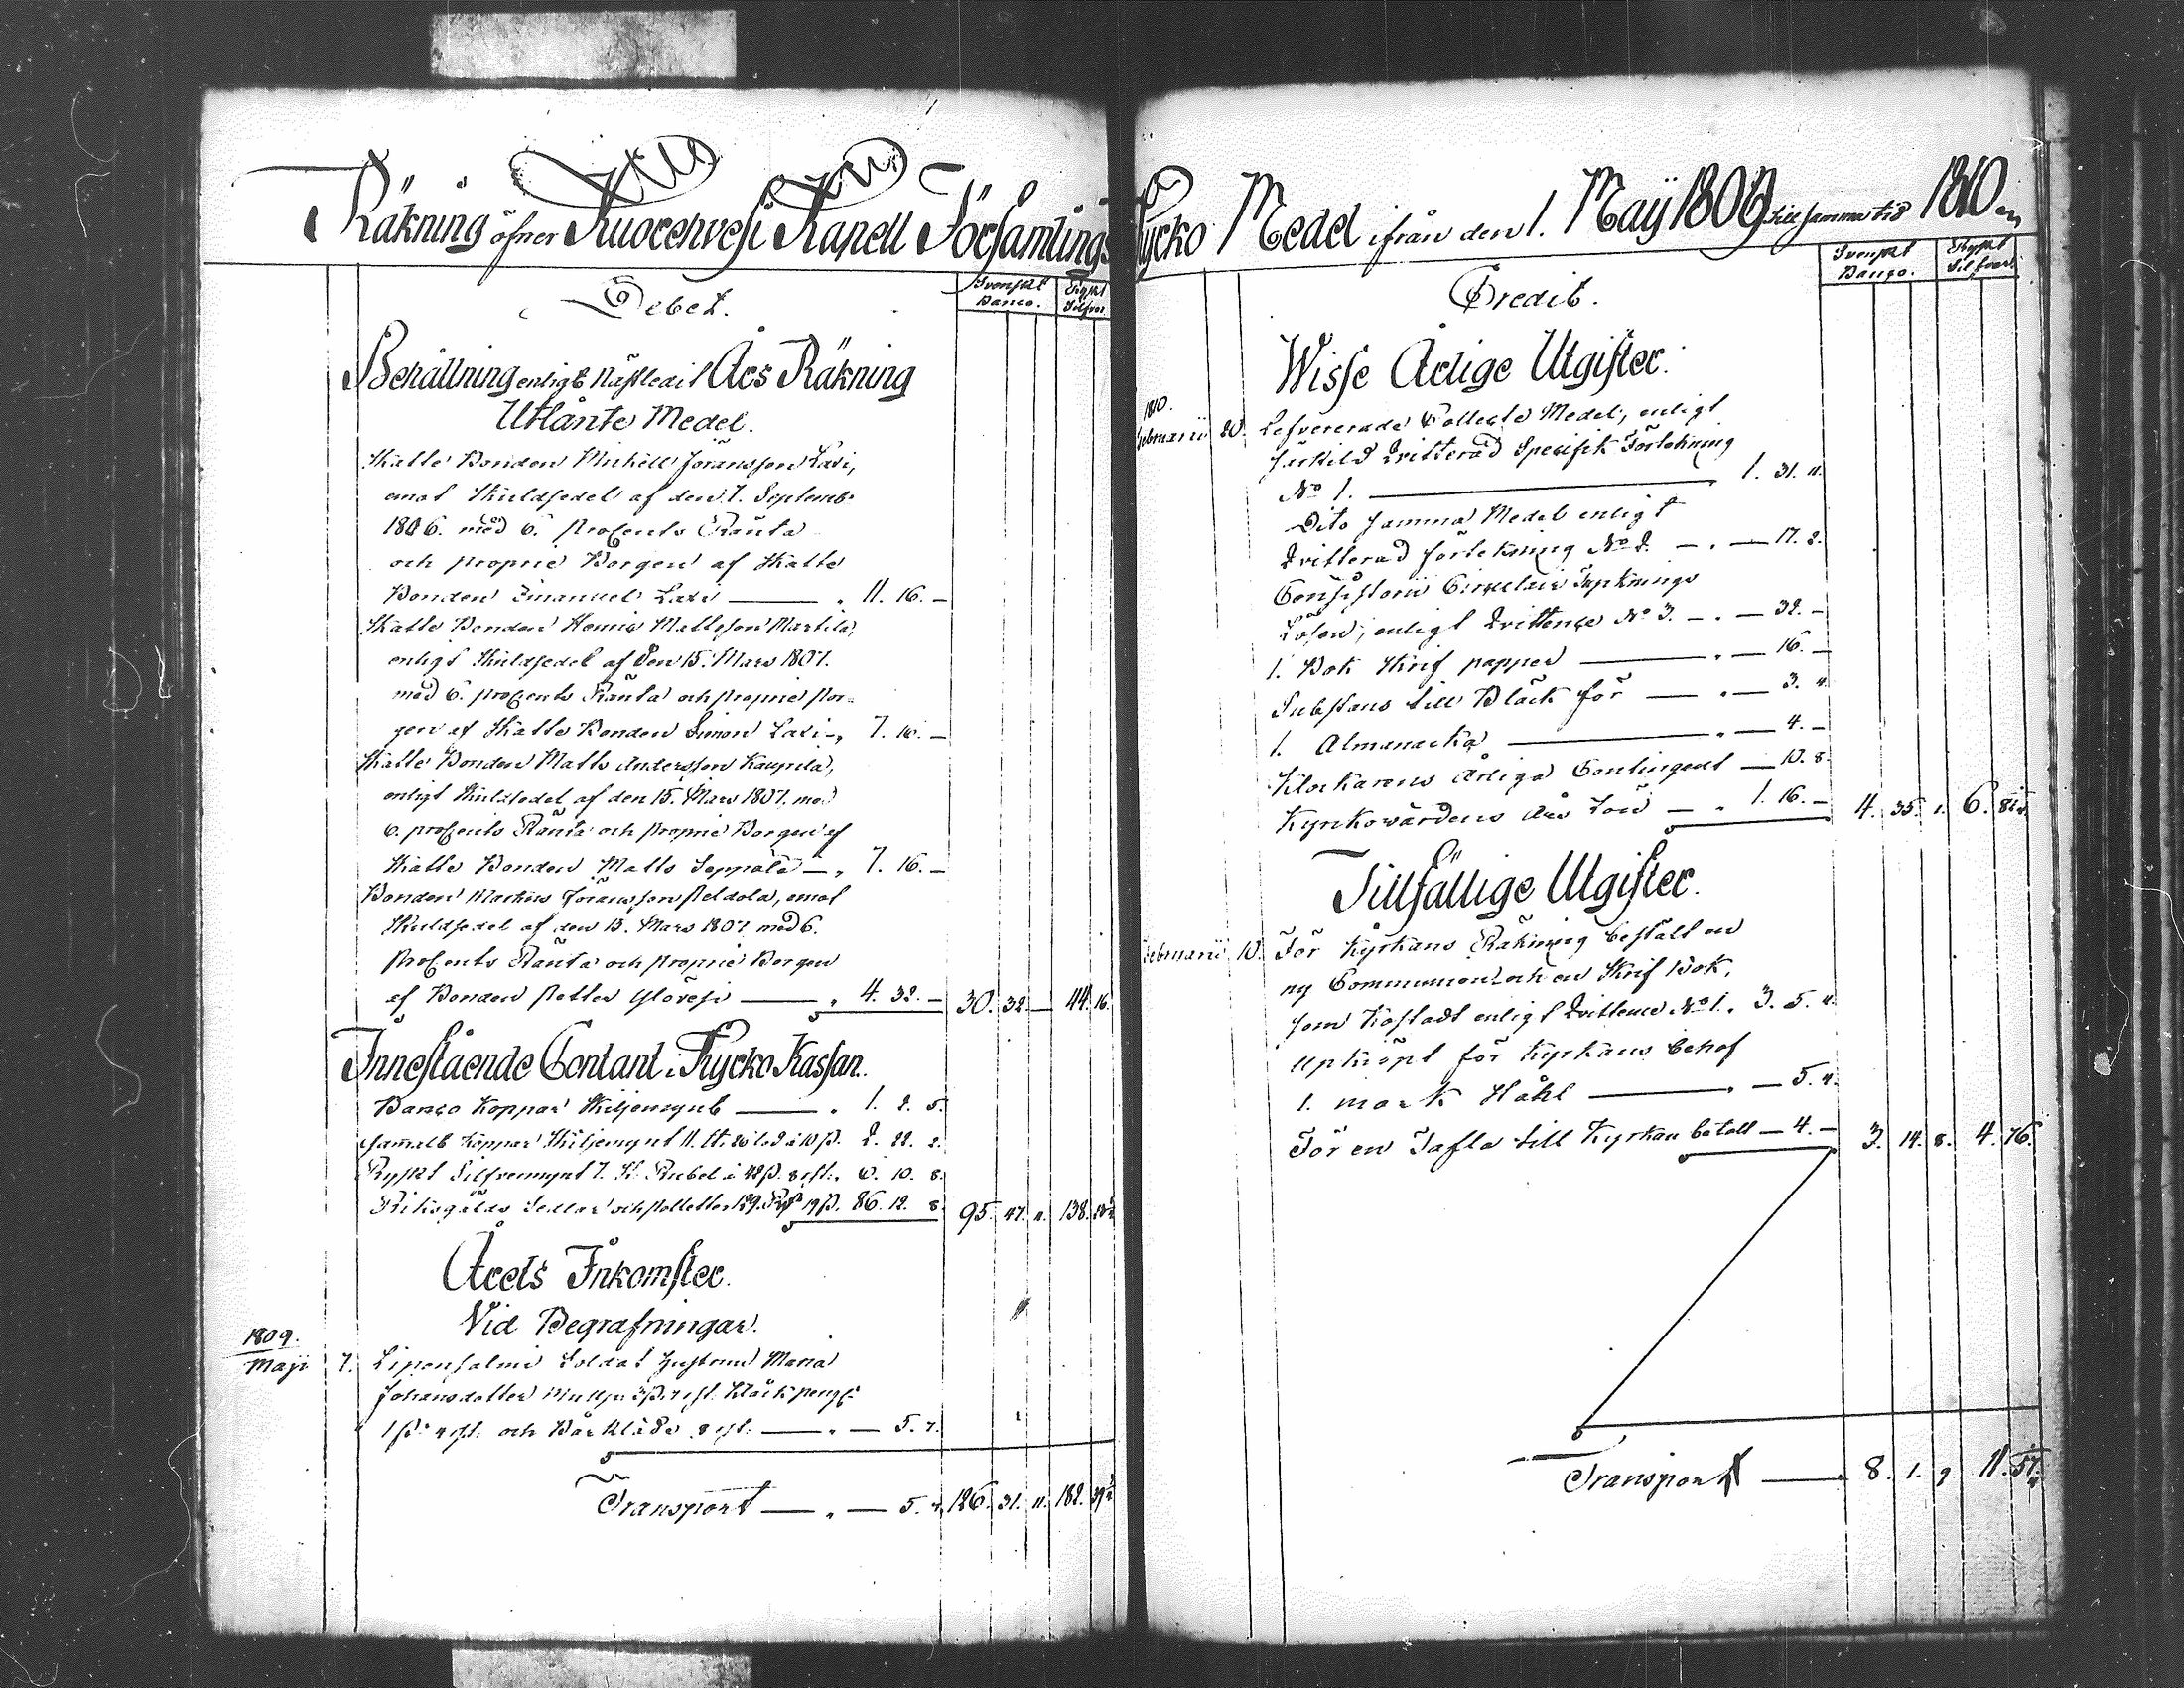 Räkning öfver Kuorehvesi Kapell Församlings
Debet.
Svenskt Banco. Ryskt Silfver
Behållning enligt nästledit Års Räkning
Utlånte Medel.
Skatte Bonden Michell Göransson Lari,
emot Skuldsedel af den 7. Septemb:
1806. med 6. proCents Ränta
och proprie Borgen af Skatte
Bonden Emanuel Lari — " 11. 16. —
Skatte Bonden Henric Mattsson Martila,
enligt Skuldsedel af den 15. Mars 1807.
med 6. proCents Ränta och proprie Bor=
gen af Skatte Bonden Simon Lari — " 7. 16. —
Skatte Bonden Matts Andersson Kaupila,
enligt Skuldsedel af den 15. Mars 1807. med
6. proCents Ränta och proprie Borgen af
Skatte Bonden Matts Seppälä — " 7. 16. —
Bonden Markus Göransson Peldola, emot
Skuldsedel af den 15. Mars 1807 med 6.
ProCents Ränta och proprie Borgen
af Bonden Petter Ylöresi — " 4. 32. — 30. 32. — 44. 16.
Innestående Contant i Kyrko Kassan.
Banco Koppar Skiljemynt — " 1. 2. 5.
Ryskt Silfvermynt 7. Rubel à 42 ß. 8 rst. 6. 10. 8.
Riksgälds Sedlar och Polletter 129. Rd 19 ß. 86. 12. 8. 95. 47. 11. 138.
Årets Inkomster.
Vid Begrafningar.
1809.
Maji 7. Lipensalmi Soldat Hustrun Maria
Johansdotter
1 ß. 4 rst. och Bårkläde 8 rst. — " — 5. 7.
Transport — " — 5. 7. 126. 31. 11. 182. 39½
Kyrko Medel ifrån den 1. Maij 1809 till samma tid 1810.
Credit.
Svenskt Banco. Ryskt Silfver.
Wisse Årlige Utgifter.
1810.
Februarii 20. Lefvererade Collecte Medel, enligt
särskild Qvitterad Specifik Förtekning
No 1. — 1. 31. 11.
Dito samma Medel enligt
Qvitterad förtekning No 2. — " — 17. 2.
Consistorii Circulair
Lösen, enligt Qvittence No 3. — " — 32. —
1. Bok Skrif papper — " — 16. —
Substans till Bläck för — " — 3. 4.
1. Almanacka — " — 4. —
Klockarens Årliga Contingent — 10. 8.
Kyrkovärdens Års Lön — " 1. 16. — 4. 35. 1. 6.
Tillfällige Utgifter.
Februarii 10. För Kyrkans Räkning bestält en
ny Communion och en Skrif Bok,
som kostadt enligt Qvittence No 1. 3. 5. 4.
Upköpt för Kyrkans behof
1. mark Håhl — " — 5. 4.
För en Tafla till Kyrkan betalt — 4. — 3. 14. 8. 4. 76.
Transport — " 8. 1. 9. 11. 57.